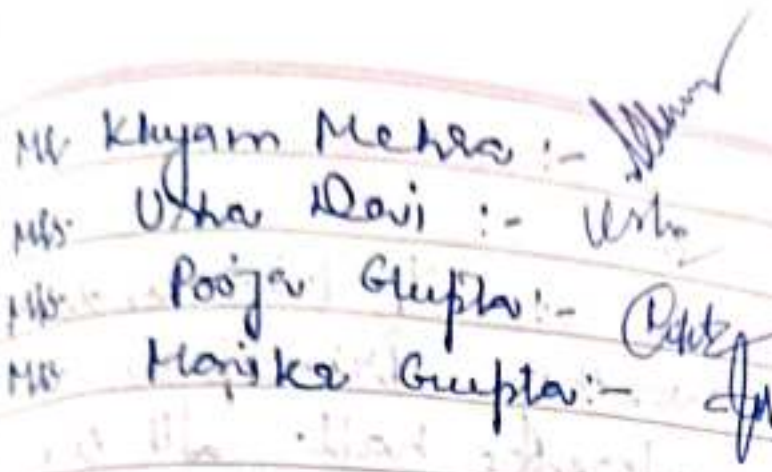 Mr Khyam Mehra :-
Mrs Usha Devi :- Usha
Mrs Pooja Gupta :-
Mrs Monika Gupta :-